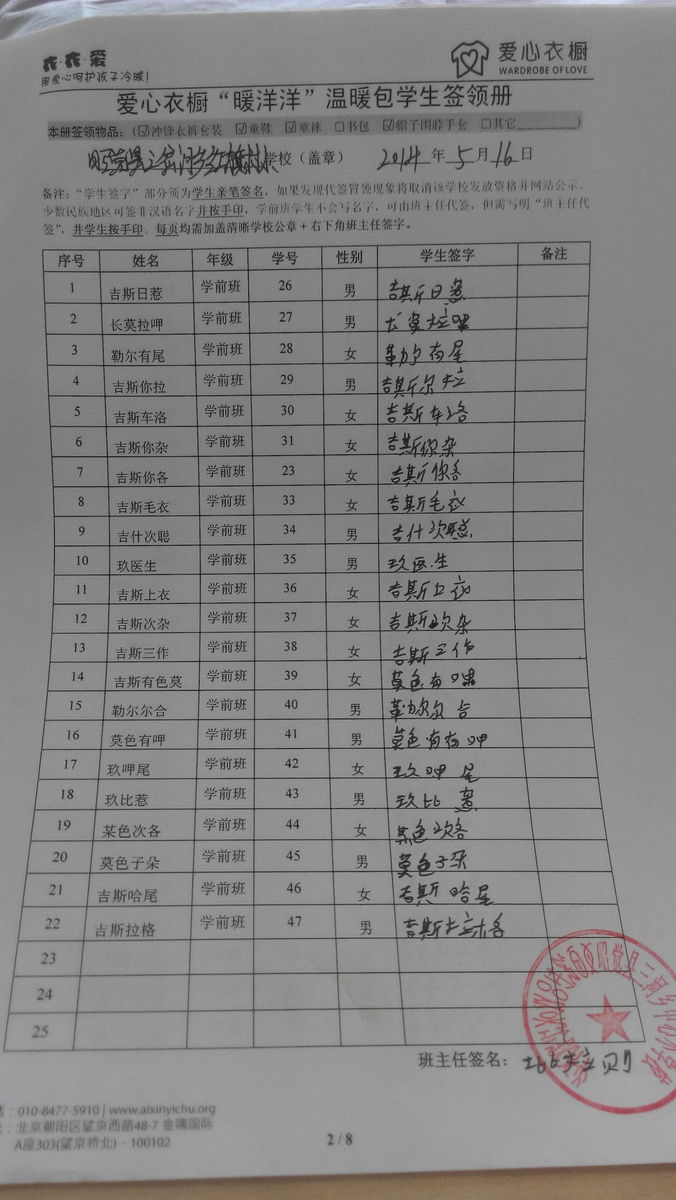 衣·衣·爱
用爱心呵护孩子冷暖!
爱心衣橱
WARDROBE OF LOVE
爱心衣橱“暖洋洋”温暖包学生签领册
本册签领物品:(☑冲锋衣裤套装 ☑童鞋 ☑童袜 □书包 ☑帽子围脖手套 □其它________)
学校(盖章) 2014年5月16日
备注:“学生签字”部分须为学生亲笔签名,如果发现代签冒领现象将取消该学校发放资格并网站公示。
少数民族地区可签非汉语名字并按手印,学前班学生不会写名字,可由班主任代签,但需写明“班主任代
签”,并学生按手印。每页均需加盖清晰学校公章+右下角班主任签字。
序号 姓名 年级 学号 性别 学生签字 备注
1 吉斯日惹 学前班 26 男 吉斯日惹
2 长莫拉呷 学前班 27 男 长莫拉呷
3 勒尔有尾 学前班 28 女 勒尔有尾
4 吉斯你拉 学前班 29 男 吉斯尔拉
5 吉斯车洛 学前班 30 女 吉斯车洛
6 吉斯你杂 学前班 31 女 吉斯你杂
7 吉斯你各 学前班 23 女 吉斯你各
8 吉斯毛衣 学前班 33 女 吉斯毛衣
9 吉什次聪 学前班 34 男 吉什次聪
10 玖医生 学前班 35 男 玖医生
11 吉斯上衣 学前班 36 女 吉斯上衣
12 吉斯次杂 学前班 37 女 吉斯次杂
13 吉斯三作 学前班 38 女 吉斯三作
14 吉斯有色莫 学前班 39 女 莫色有
15 勒尔尔合 学前班 40 男 勒尔尔合
16 莫色有呷 学前班 41 男 莫色有有呷
17 玖呷尾 学前班 42 女 玖呷尾
18 玖比惹 学前班 43 男 玖比惹
19 某色次各 学前班 44 女 某色次各
20 莫色子朵 学前班 45 男 莫色子朵
21 吉斯哈尾 学前班 46 女 吉斯哈尾
22 吉斯拉格 学前班 47 男 吉斯拉格
23
24
25
班主任签名:
:010-8477-5910 | www.aixinyichu.org
:北京朝阳区望京西路48-7 金隅国际
A座303(望京桥北)·100102
2 / 8